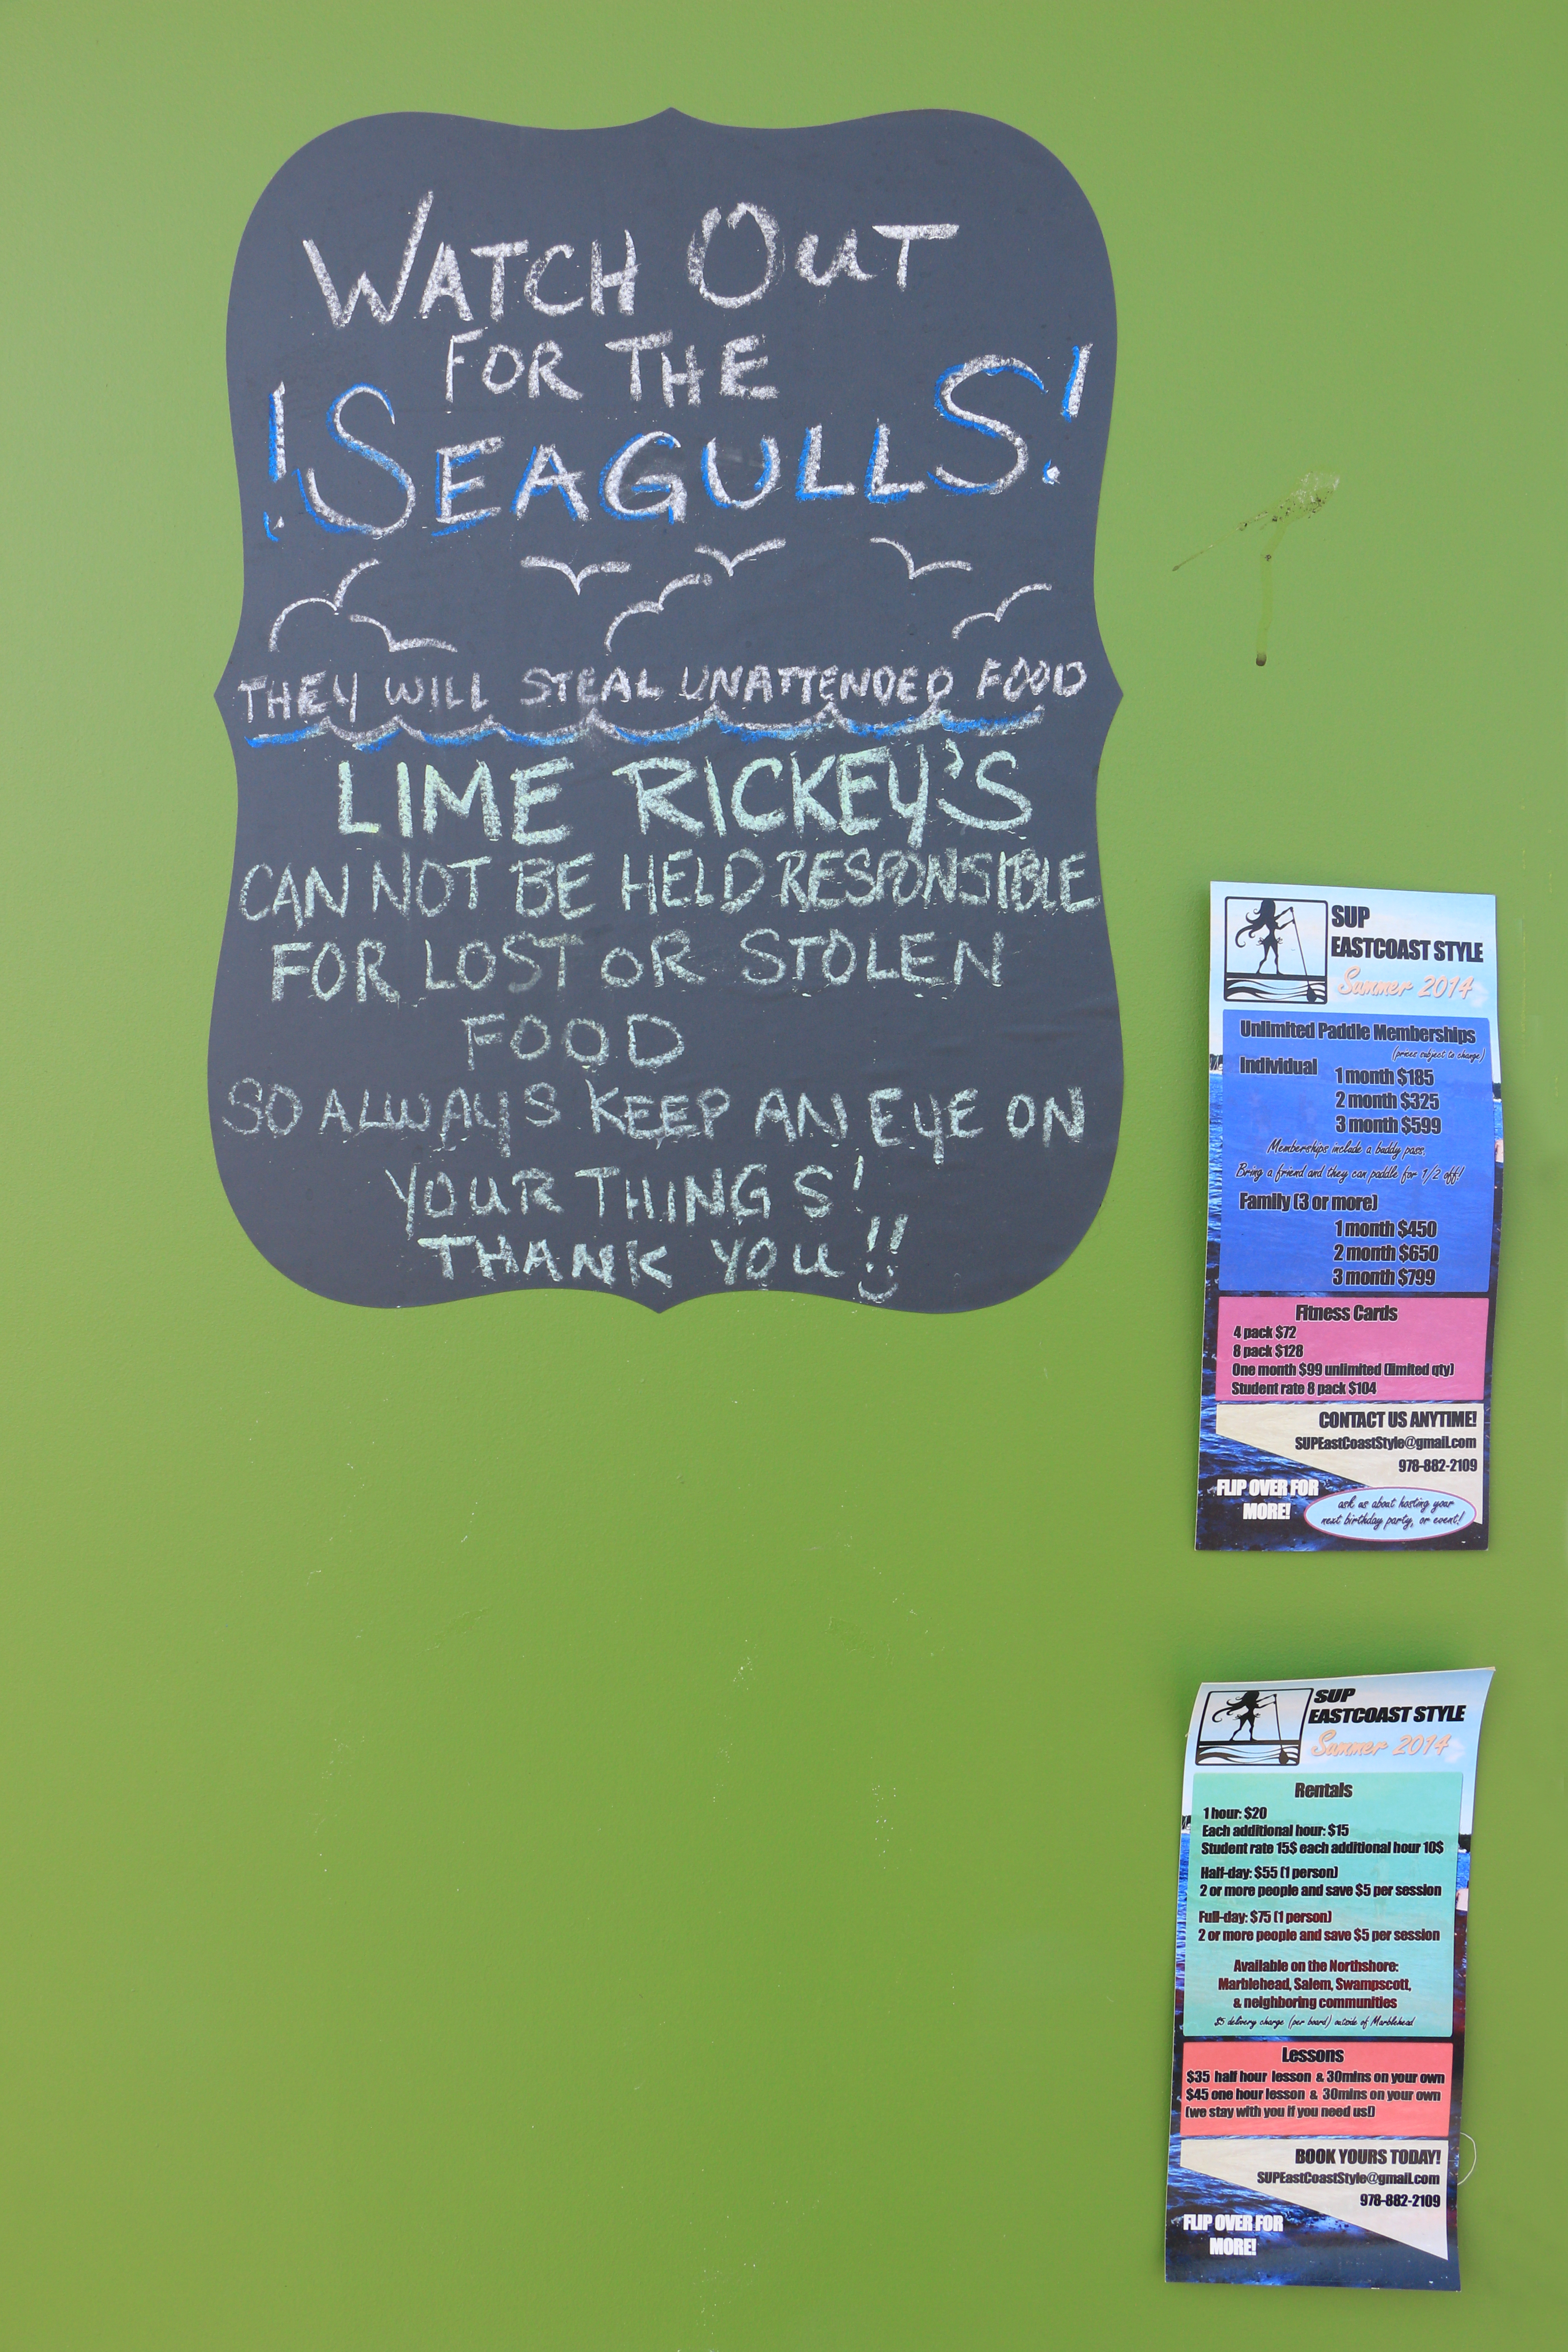 WATCH OUT
FOR THE
!SEAGULLS!
THEY WILL STEAL UNATTENDED FOOD
LIME RICKEY'S
CAN NOT BE HELD RESPONSIBLE
FOR LOST OR STOLEN
FOOD
SO ALWAYS KEEP AN EYE ON
YOUR THINGS!
THANK YOU!!
SUP
EASTCOAST STYLE
Summer 2014
Unlimited Paddle Memberships
(prices subject to change)
Individual
1 month $185
2 month $325
3 month $599
Memberships include a buddy pass.
Bring a friend and they can paddle for 1/2 off!
Family (3 or more)
1 month $450
2 month $650
3 month $799
Fitness Cards
4 pack $72
8 pack $128
One month $99 unlimited (limited qty)
Student rate 8 pack $104
CONTACT US ANYTIME!
SUPEastCoastStyle@gmail.com
978-882-2109
FLIP OVER FOR
MORE!
ask us about hosting your
next birthday party, or event!
SUP
EASTCOAST STYLE
Summer 2014
Rentals
1 hour: $20
Each additional hour: $15
Student rate 15$ each additional hour 10$
Half-day: $55 (1 person)
2 or more people and save $5 per session
Full-day: $75 (1 person)
2 or more people and save $5 per session
Available on the Northshore:
Marblehead, Salem, Swampscott,
& neighboring communities
$5 delivery charge (per board) outside of Marblehead
Lessons
$35 half hour lesson & 30mins on your own
$45 one hour lesson & 30mins on your own
(we stay with you if you need us!)
BOOK YOURS TODAY!
SUPEastCoastStyle@gmail.com
978-882-2109
FLIP OVER FOR
MORE!